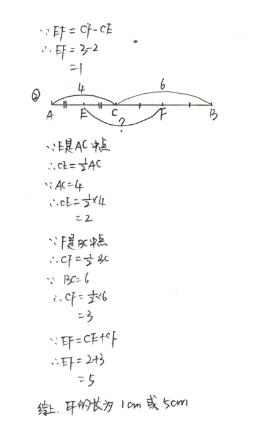 ∵EF=CF-CE
∴EF=3-2
=1
② 4 6
A E C F B
?
∵E是AC中点
∴CE=½AC
∵AC=4
∴CE=½×4
=2
∵F是BC中点
∴CF=½BC
∵BC=6
∴CF=½×6
=3
∵EF=CE+CF
∴EF=2+3
=5
综上,EF的长为1cm或5cm